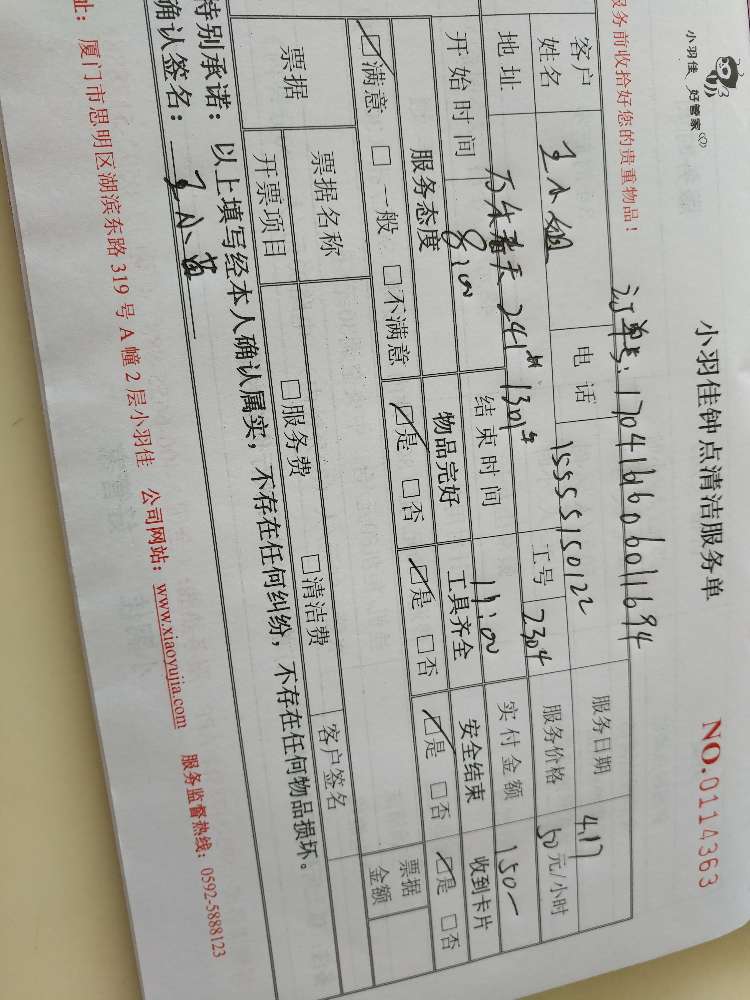 小羽佳 好管家
小羽佳钟点清洁服务单 NO.0114363
服务前收拾好您的贵重物品！
订单号：1704166060711694
客户姓名 电话 15555150122 服务日期 4.17
工号 2304 服务价格 50元/小时
地址 万朱春天 241# 1301# 实付金额 150-
开始时间 8:00 结束时间 11:00
服务态度 物品完好 工具齐全 安全结束 收到卡片
☑满意 □一般 □不满意 ☑是 □否 ☑是 □否 ☑是 □否 ☑是 □否
票据 票据名称 客户签名 票据金额
开票项目 □服务费 □清洁费
特别承诺：以上填写经本人确认属实，不存在任何纠纷，不存在任何物品损坏。
确认签名：
址：厦门市思明区湖滨东路319号A幢2层小羽佳 公司网站：www.xiaoyujia.com 服务监督热线：0592-5888123